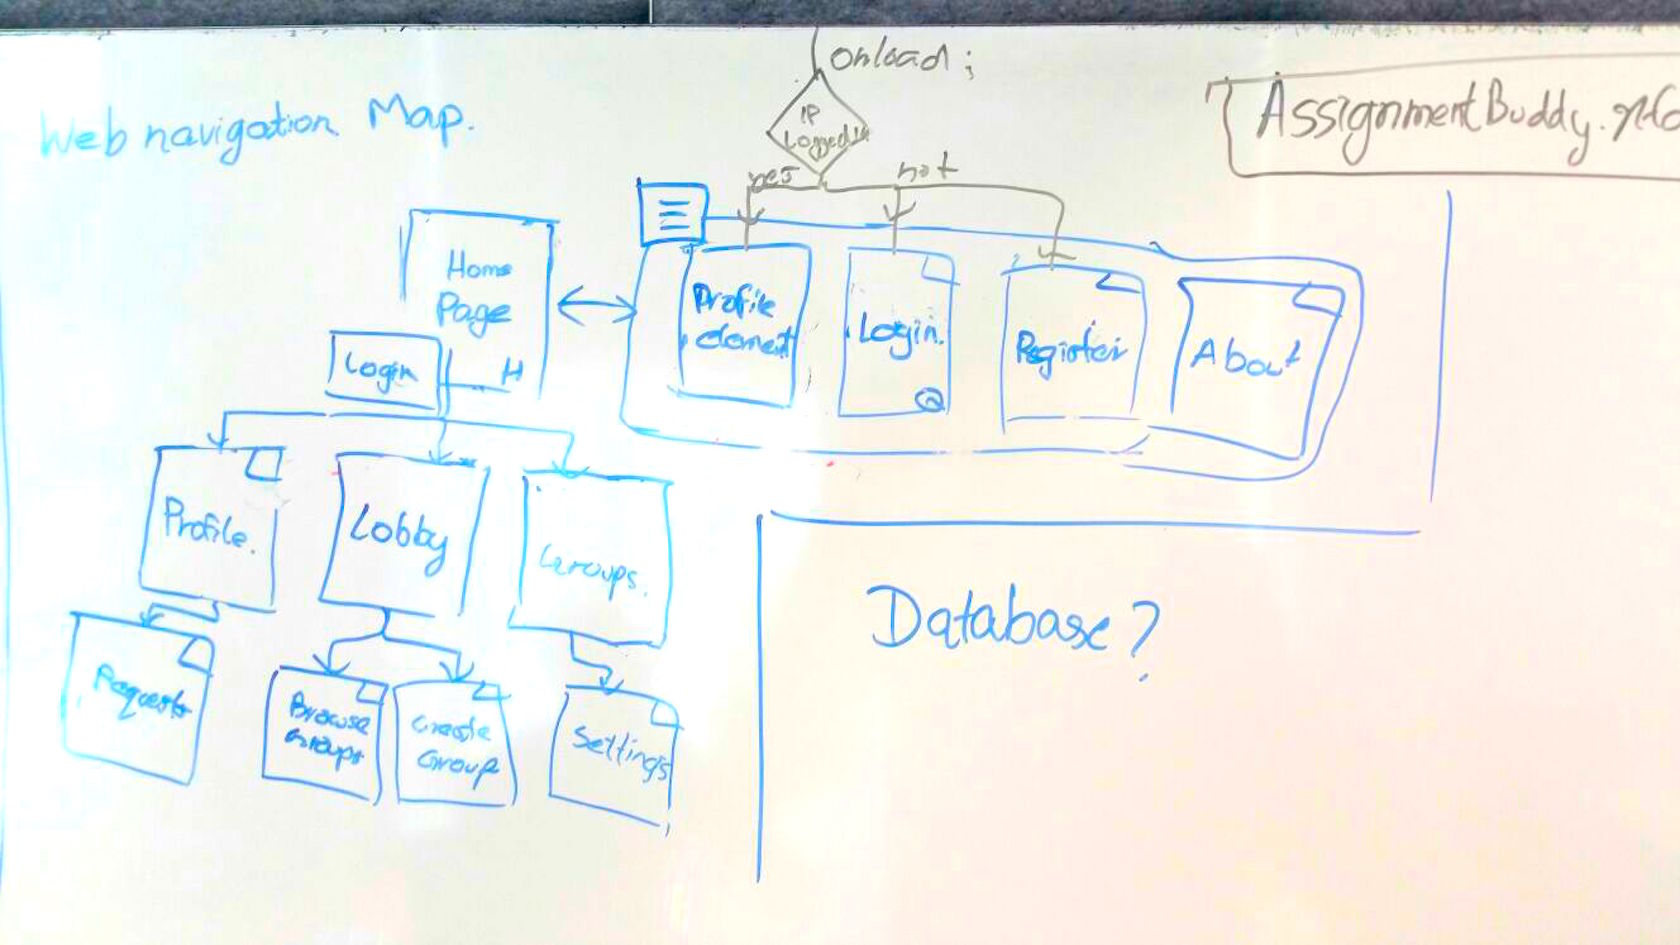 onload;
Web navigation Map.
IP
Logged in
AssignmentBuddy.
yes
not
Home
Page
H
Login
Profile
element
Login.
Register
About
Profile.
Lobby
Groups.
Requests
Browse
Groups
Create
Group
Settings
Database?